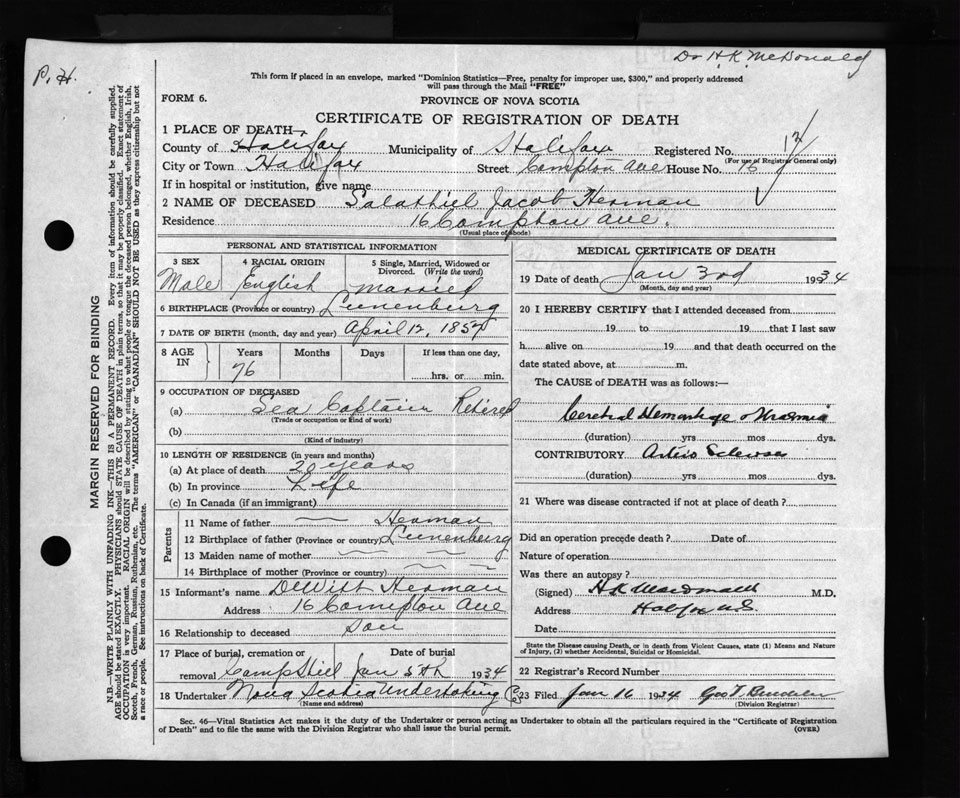 Dr H.K. McDonald
P. H.
This form if placed in an envelope, marked "Dominion Statistics—Free, penalty for improper use, $300," and properly addressed
will pass through the Mail "FREE"
FORM 6.
PROVINCE OF NOVA SCOTIA
CERTIFICATE OF REGISTRATION OF DEATH
1 PLACE OF DEATH—
County of Halifax Municipality of Halifax Registered No. 12
(For use of Registrar General only)
City or Town Halifax Street Compton Ave House No. 16
If in hospital or institution, give name
2 NAME OF DECEASED Salathiel Jacob Herman
Residence 16 Compton Ave.
(Usual place of abode)
PERSONAL AND STATISTICAL INFORMATION
3 SEX 4 RACIAL ORIGIN 5 Single, Married, Widowed or Divorced. (Write the word)
Male English Married
6 BIRTHPLACE (Province or country) Lunenburg
7 DATE OF BIRTH (month, day and year) April 12, 1857
8 AGE IN Years Months Days If less than one day,
76 hrs. or min.
9 OCCUPATION OF DECEASED
(a) Sea Captain Retired
(Trade or occupation or kind of work)
(b)
(Kind of industry)
10 LENGTH OF RESIDENCE (in years and months)
(a) At place of death 20 years
(b) In province Life
(c) In Canada (if an immigrant)
Parents
11 Name of father — Herman
12 Birthplace of father (Province or country) Lunenburg
13 Maiden name of mother
14 Birthplace of mother (Province or country)
15 Informant's name DeWitt Herman
Address 16 Compton Ave
16 Relationship to deceased Son
17 Place of burial, cremation or removal Date of burial
Camp Hill Jan 5th 1934
18 Undertaker Nova Scotia Undertaking Co
(Name and address)
MEDICAL CERTIFICATE OF DEATH
19 Date of death Jan 3rd 1934
(Month, day and year)
20 I HEREBY CERTIFY that I attended deceased from
19 to 19 that I last saw
h alive on 19 and that death occurred on the
date stated above, at m.
The CAUSE of DEATH was as follows:—
Cerebral Hemorrhage Uraemia
(duration) yrs mos dys.
CONTRIBUTORY Arterio Sclerosis
(duration) yrs. mos. dys.
21 Where was disease contracted if not at place of death?
Did an operation precede death? Date of
Nature of operation
Was there an autopsy?
(Signed) H.K. MacDonald M.D.
Address Halifax N.S.
Date
State the Disease causing Death, or in death from Violent Causes, state (1) Means and Nature
of Injury, (2) whether Accidental, Suicidal or Homicidal.
22 Registrar's Record Number
23 Filed Jan 16 1934 Geo T.
(Division Registrar)
Sec. 46—Vital Statistics Act makes it the duty of the Undertaker or person acting as Undertaker to obtain all the particulars required in the "Certificate of Registration
of Death" and to file the same with the Division Registrar who shall issue the burial permit. (OVER)
MARGIN RESERVED FOR BINDING
N.B.—WRITE PLAINLY WITH UNFADING INK—THIS IS A PERMANENT RECORD. Every item of information should be carefully supplied.
AGE should be stated EXACTLY. PHYSICIANS should STATE CAUSE OF DEATH in plain terms, so that it may be properly classified. Exact statement of
OCCUPATION is very important. RACIAL ORIGIN will be described by stating to what people or tongue the deceased person belonged, whether English, Irish,
Scotch, French, German, Russian, Ruthenian, etc. The terms "AMERICAN" or "CANADIAN" SHOULD NOT BE USED as they express citizenship but not
a race or people. See instructions on back of Certificate.